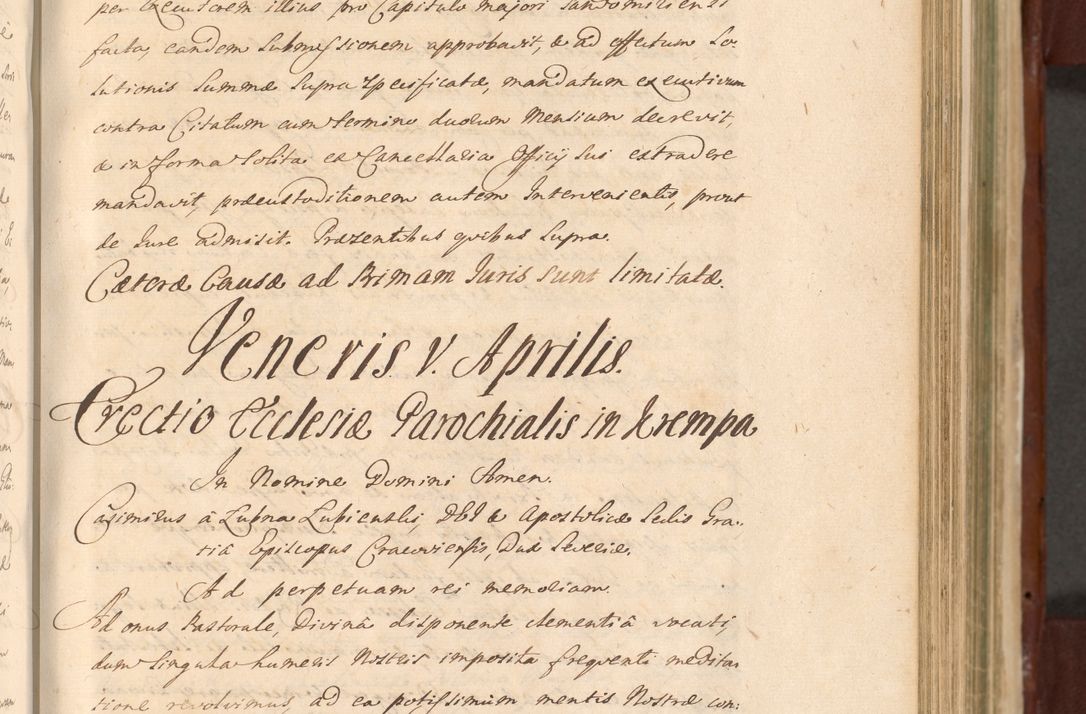 per Executorem illius pro Capitulo majori Sandomiriensi
facta, eandem Submissionem approbavit, & ad effectum So-
lutionis Summæ Supra Specificatæ, mandatum executivum
contra Citatum cum termino duorum Mensium decrevit,
& in forma Solita ex Cancellaria Officij Sui extradere
mandavit, præcustoditionem autem Intervenientis, prout
de Iure admisit. Præsentibus quibus Supra.
Cæteræ Causæ ad Primam Iuris sunt limitatæ.
Veneris V. Aprilis.
Erectio Ecclesiæ Parochialis in Krempa
In Nomine Domini Amen.
Casimirus â Lubna Lubienski, DEI & Apostolicæ Sedis Gra-
tiâ Episcopus Cracoviensis, Dux Severiæ.
Ad perpetuam rei memoriam.
Ad onus Pastorale, Divinâ disponente clementiâ vocati,
dum Singula humeris Nostris imposita frequenti medita-
tione revolvimus, ad ea potissimum mentis Nostræ con: